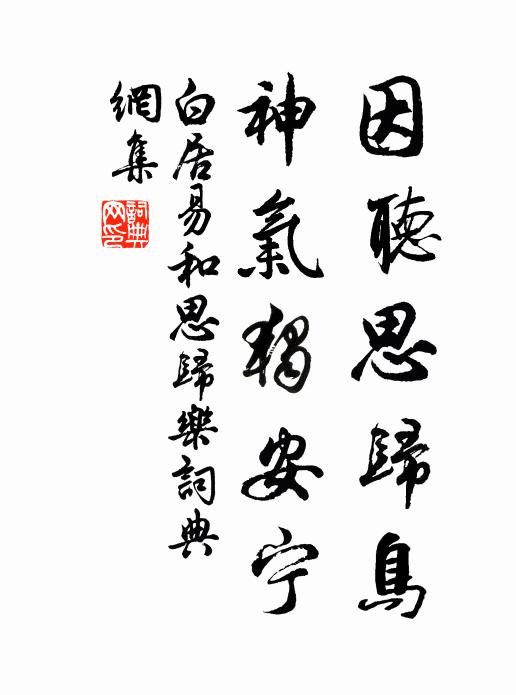 因聽思歸鳥
神氣獨安宁
白居易和思歸樂詞典
網集
詞典
网印